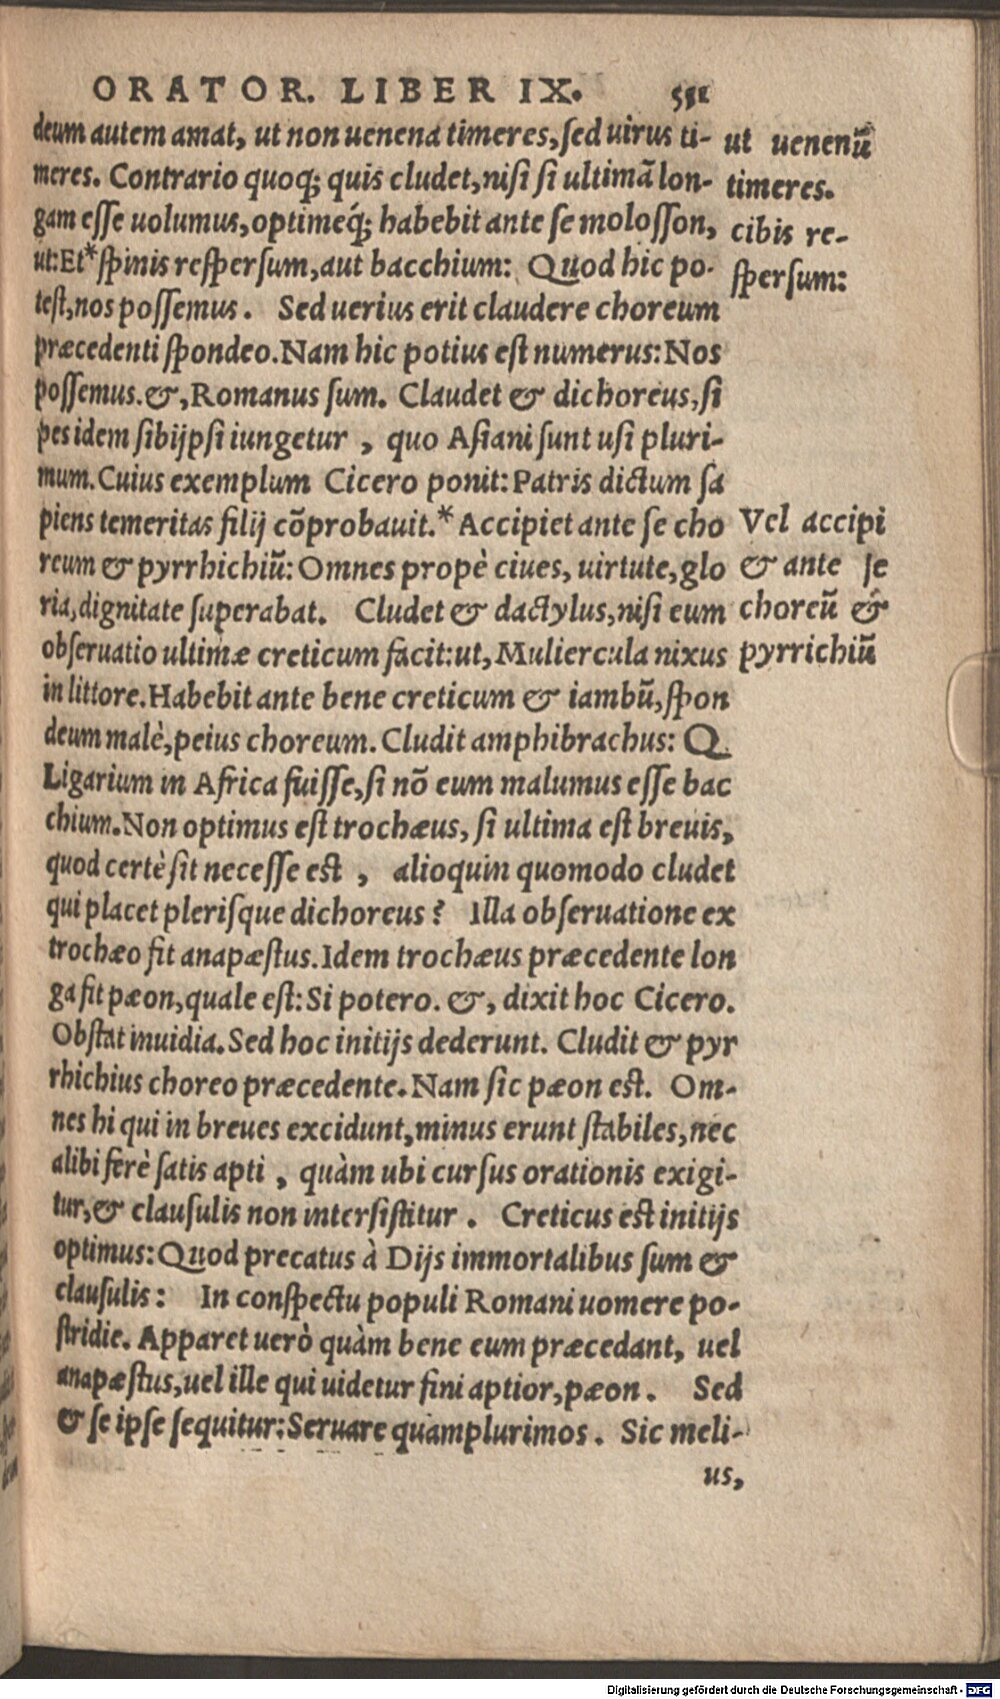 ORATOR. LIBER IX. 551
deum autem amat, ut non uenena timeres, sed uirus ti-
meres. Contrario quoq; quis cludet, nisi si ultimā lon-
gam esse uolumus, optimeq́; habebit ante se molosson,
ut: Et* spinis respersum, aut bacchium: Quod hic po-
test, nos possemus. Sed uerius erit claudere choreum
præcedenti spondeo. Nam hic potius est numerus: Nos
possemus. &, Romanus sum. Claudet & dichoreus, si
pes idem sibijpsi iungetur, quo Asiani sunt usi pluri-
mum. Cuius exemplum Cicero ponit: Patris dictum sa
piens temeritas filij cōprobauit.* Accipiet ante se cho
reum & pyrrhichiū: Omnes propè ciues, uirtute, glo
ria, dignitate superabat. Cludet & dactylus, nisi eum
obseruatio ultimæ creticum facit: ut, Muliercula nixus
in littore. Habebit ante bene creticum & iambū, spon
deum malè, peius choreum. Cludit amphibrachus: Q.
Ligarium in Africa fuisse, si nō eum malumus esse bac
chium. Non optimus est trochæus, si ultima est breuis,
quod certè sit necesse est, alioquin quomodo cludet
qui placet plerisque dichoreus? Illa obseruatione ex
trochæo fit anapæstus. Idem trochæus præcedente lon
ga fit pæon, quale est: Si potero. &, dixit hoc Cicero.
Obstat inuidia. Sed hoc initijs dederunt. Cludit & pyr
rhichius choreo præcedente. Nam sic pæon est. Om-
nes hi qui in breues excidunt, minus erunt stabiles, nec
alibi ferè satis apti, quàm ubi cursus orationis exigi-
tur, & clausulis non intersistitur. Creticus est initijs
optimus: Quod precatus à Dijs immortalibus sum &
clausulis: In conspectu populi Romani uomere po-
stridie. Apparet uerò quàm bene eum præcedant, uel
anapæstus, uel ille qui uidetur fini aptior, pæon. Sed
& se ipse sequitur: Seruare quamplurimos. Sic meli-
us,
ut uenenū
timeres.
cibis re-
spersum:
Vel accipi
& ante se
choreū &
pyrrichiū
Digitalisierung gefördert durch die Deutsche Forschungsgemeinschaft - DFG